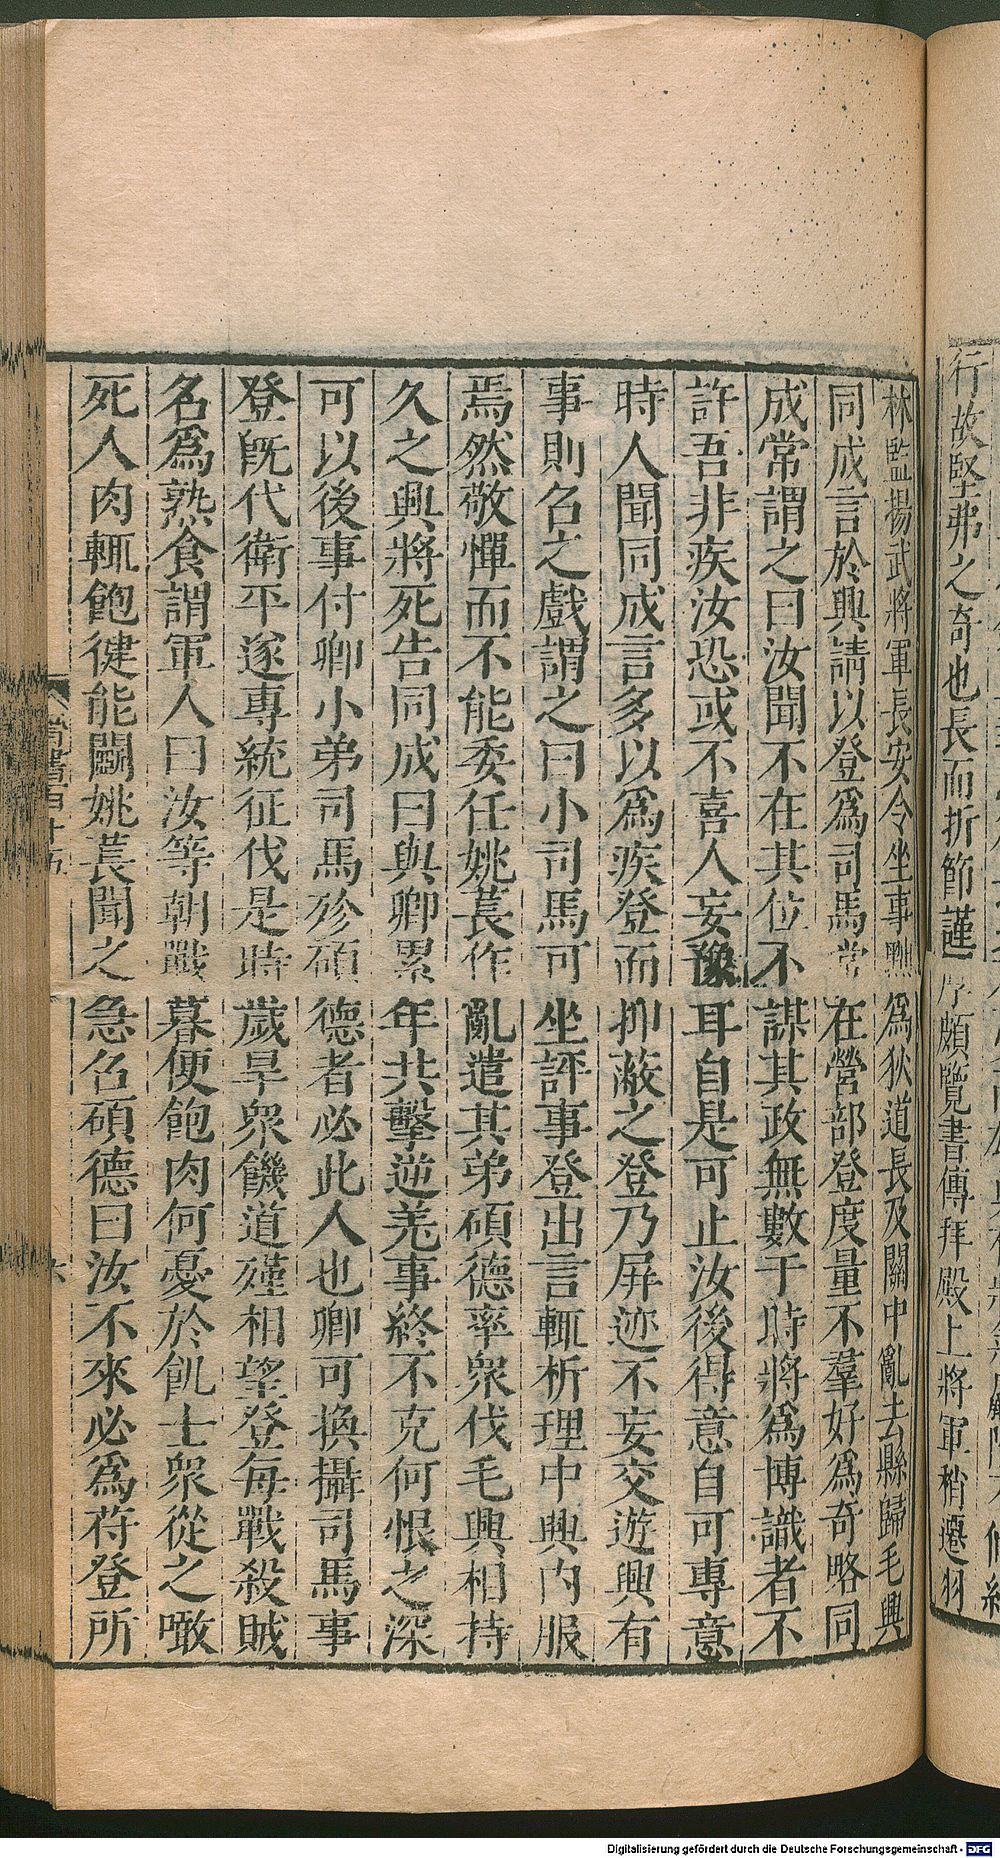 行故堅弗之奇也長而折節謹序頗覽書傳拜殿上將軍稍遷羽
林監揚武將軍長安令坐事黜爲狄道長及關中亂去縣歸毛興
同成言於興請以登爲司馬常在營部登度量不羣好爲奇略同
成常謂之曰汝聞不在其位不謀其政無數于時將爲博識者不
許吾非疾汝恐或不喜人妄豫耳自是可止汝後得意自可專意
時人聞同成言多以爲疾登而抑蔽之登乃屏迹不妄交遊興有
事則召之戲謂之曰小司馬可坐評事登出言輒析理中興內服
焉然敬憚而不能委任姚萇作亂遣其弟碩德率衆伐毛興相持
久之興將死告同成曰與卿累年共擊逆羌事終不克何恨之深
可以後事付卿小弟司馬殄碩德者必此人也卿可換攝司馬事
登旣代衛平遂專統征伐是時歲旱衆饑道殣相望登每戰殺賊
名爲熟食謂軍人曰汝等朝戰暮便飽肉何憂於飢士衆從之噉
死人肉輒飽健能鬭姚萇聞之急召碩德曰汝不來必爲苻登所
晉書百十五
六
Digitalisierung gefördert durch die Deutsche Forschungsgemeinschaft - DFG